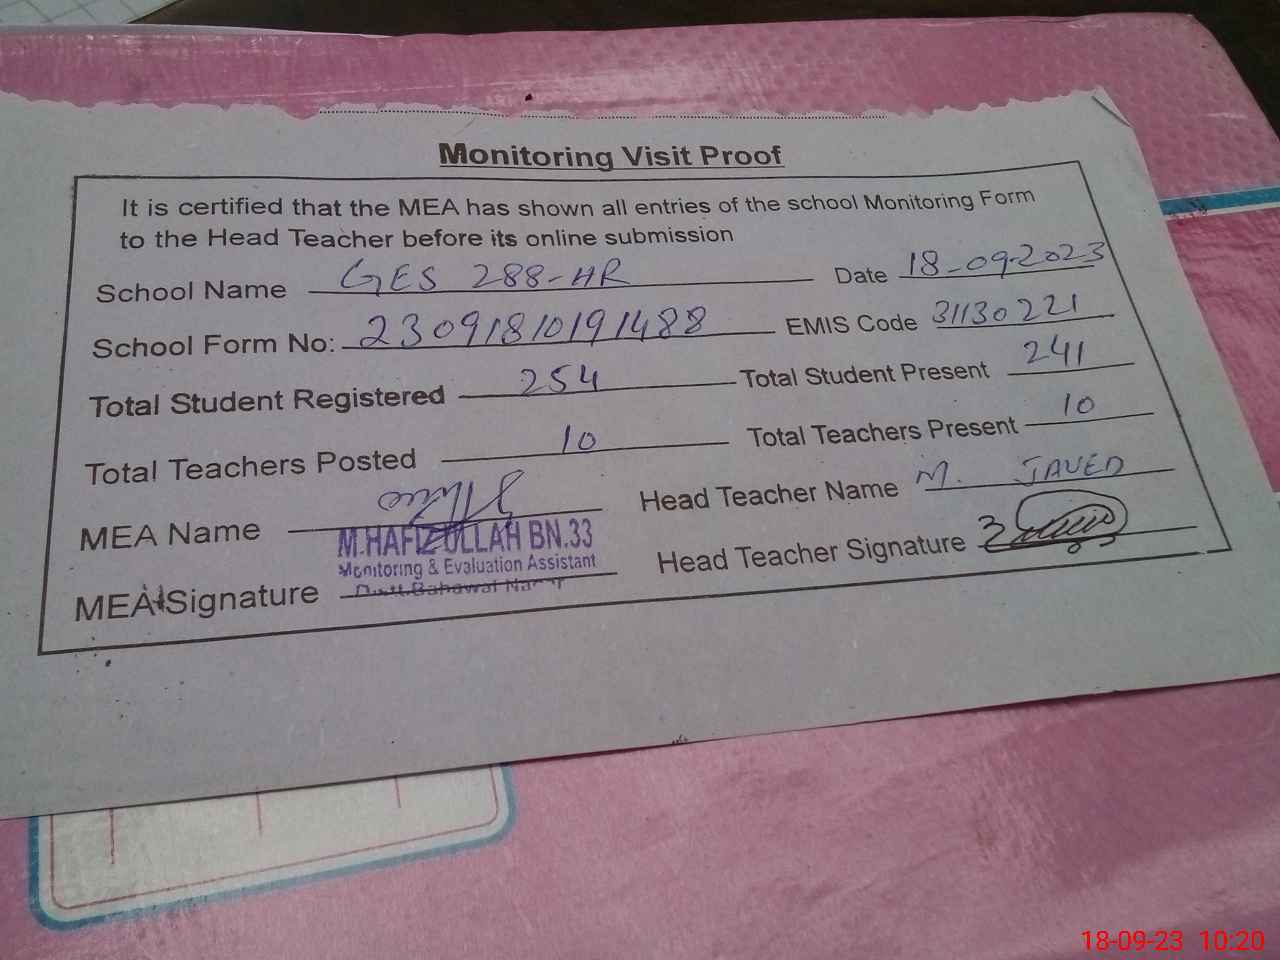 Monitoring Visit Proof
It is certified that the MEA has shown all entries of the school Monitoring Form
to the Head Teacher before its online submission
School Name GES 288-HR Date 18-09-2023
School Form No: 23091810191488 EMIS Code 31130221
Total Student Registered 254 Total Student Present 241
Total Teachers Posted 10 Total Teachers Present 10
MEA Name Head Teacher Name M. JAVED
M.HAFIZULLAH BN.33
Monitoring & Evaluation Assistant
MEA Signature Head Teacher Signature
Distt.Bahawal Nagar
18-09-23 10:20